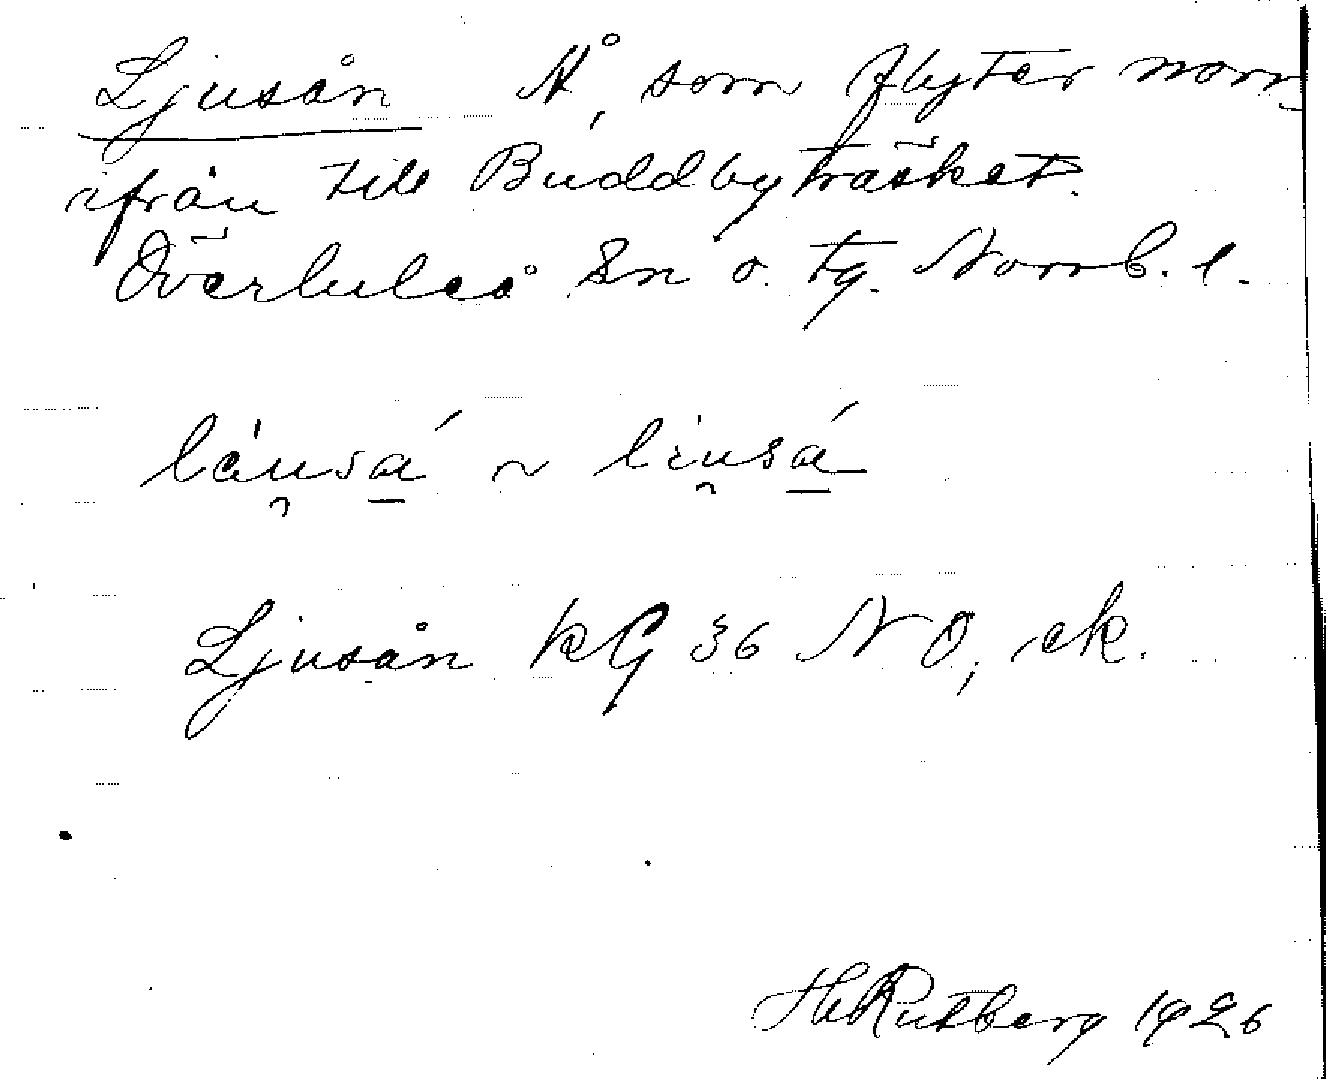 Ljusån Å, som flyter norr-
ifrån till Buddbyträsket.
Överluleå Sn o. tg. Norrb. l.
läu̯sá ~ liu̯sá
Ljusån kG 36 NO, ek.
H Rutberg 1926